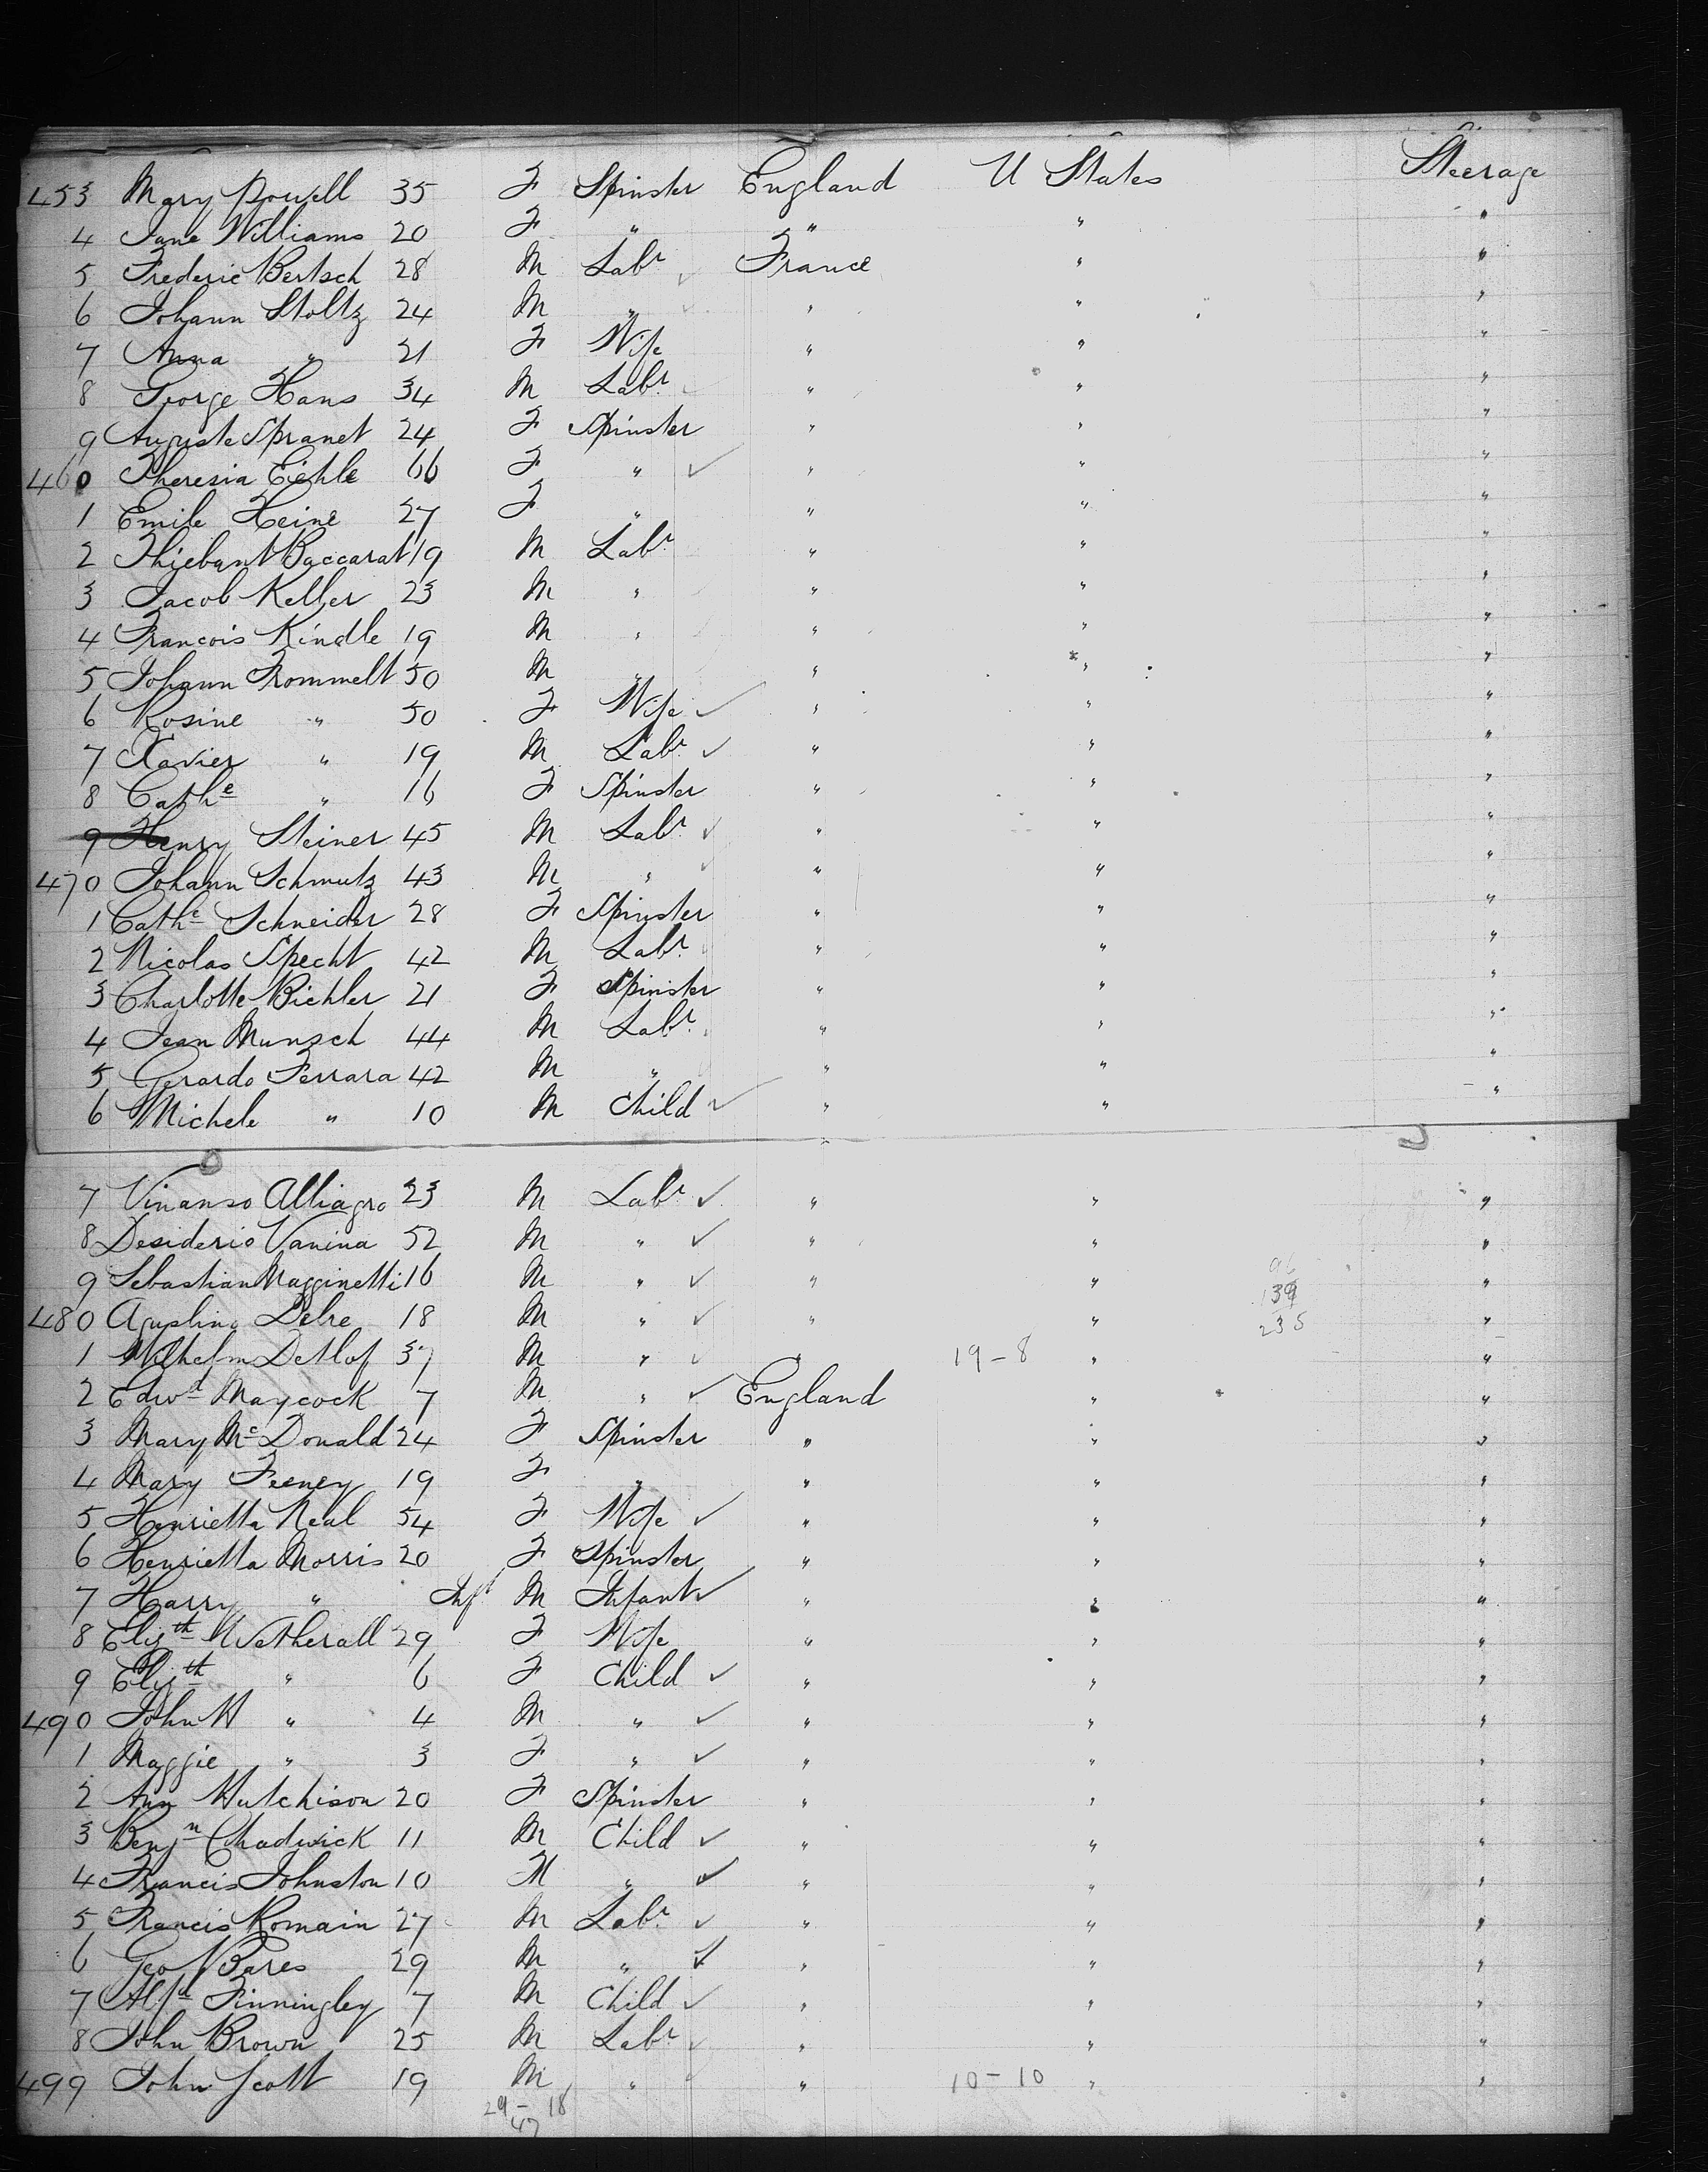 453 Mary Powell 35 F Spinster England U States Steerage
4 Jane Williams 20 F " " " "
5 Frederic Bertsch 28 M Labr ✓ France " "
6 Johann Stoltz 24 M " ✓ " " "
7 Anna " 21 F Wife " " "
8 George Hans 34 M Labr ✓ " " "
9 Auguste Spranet 24 F Spinster " " "
460 Theresia Eichle 66 F " ✓ " " "
1 Emile Heine 27 F " " " "
2 Thiebant Baccarat 19 M Labr " " "
3 Jacob Keller 23 M " " " "
4 Francois Kindle 19 M " " " "
5 Johann Frommelt 50 M " " " "
6 Rosine " 50 F Wife ✓ " " "
7 Xavier " 19 M Labr ✓ " " "
8 Cathe " 16 F Spinster " " "
9 Henry Steiner 45 M Labr ✓ " " "
470 Johann Schmutz 43 M " ✓ " " "
1 Cathe Schneider 28 F Spinster " " "
2 Nicolas Specht 42 M Labr " " "
3 Charlotte Bichler 21 F Spinster " " "
4 Jean Munsch 44 M Labr " " "
5 Gerardo Ferrara 42 M " " " "
6 Michele " 10 M Child ✓ " " "
7 Vinanso Alliagro 23 M Labr ✓ " " "
8 Desiderio Vanina 52 M " ✓ " " "
9 Sebastian Magginetti 16 M " ✓ " " 96 139 "
480 Agustino Delre 18 M " ✓ " " 235 "
1 Wilhelm Detlof 37 M " ✓ " 19-8 " "
2 Edwd Maycock 7 M " ✓ England " "
3 Mary McDonald 24 F Spinster " " "
4 Mary Feeney 19 F " " " "
5 Henrietta Neal 54 F Wife ✓ " " "
6 Henrietta Morris 20 F Spinster " " "
7 Harry " Inft M Infant ✓ " " "
8 Elizth Wetherall 29 F Wife " " "
9 Elizth " 6 F Child ✓ " " "
490 John W " 4 M " ✓ " " "
1 Maggie " 3 F " ✓ " " "
2 Ann Hutchison 20 F Spinster " " "
3 Benjn Chadwick 11 M Child ✓ " " "
4 Francis Johnston 10 M " ✓ " " "
5 Francis Romain 27 M Labr ✓ " " "
6 Geo Bares 29 M " ✓ " " "
7 Alfd Finningley 7 M Child ✓ " " "
8 John Brown 25 M Labr ✓ " " "
499 John Scott 19 M " ✓ " 10-10 " "
29-18
47